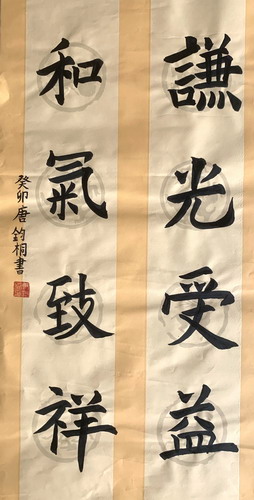 謙光受益
和氣致祥
癸卯唐鈞桐書